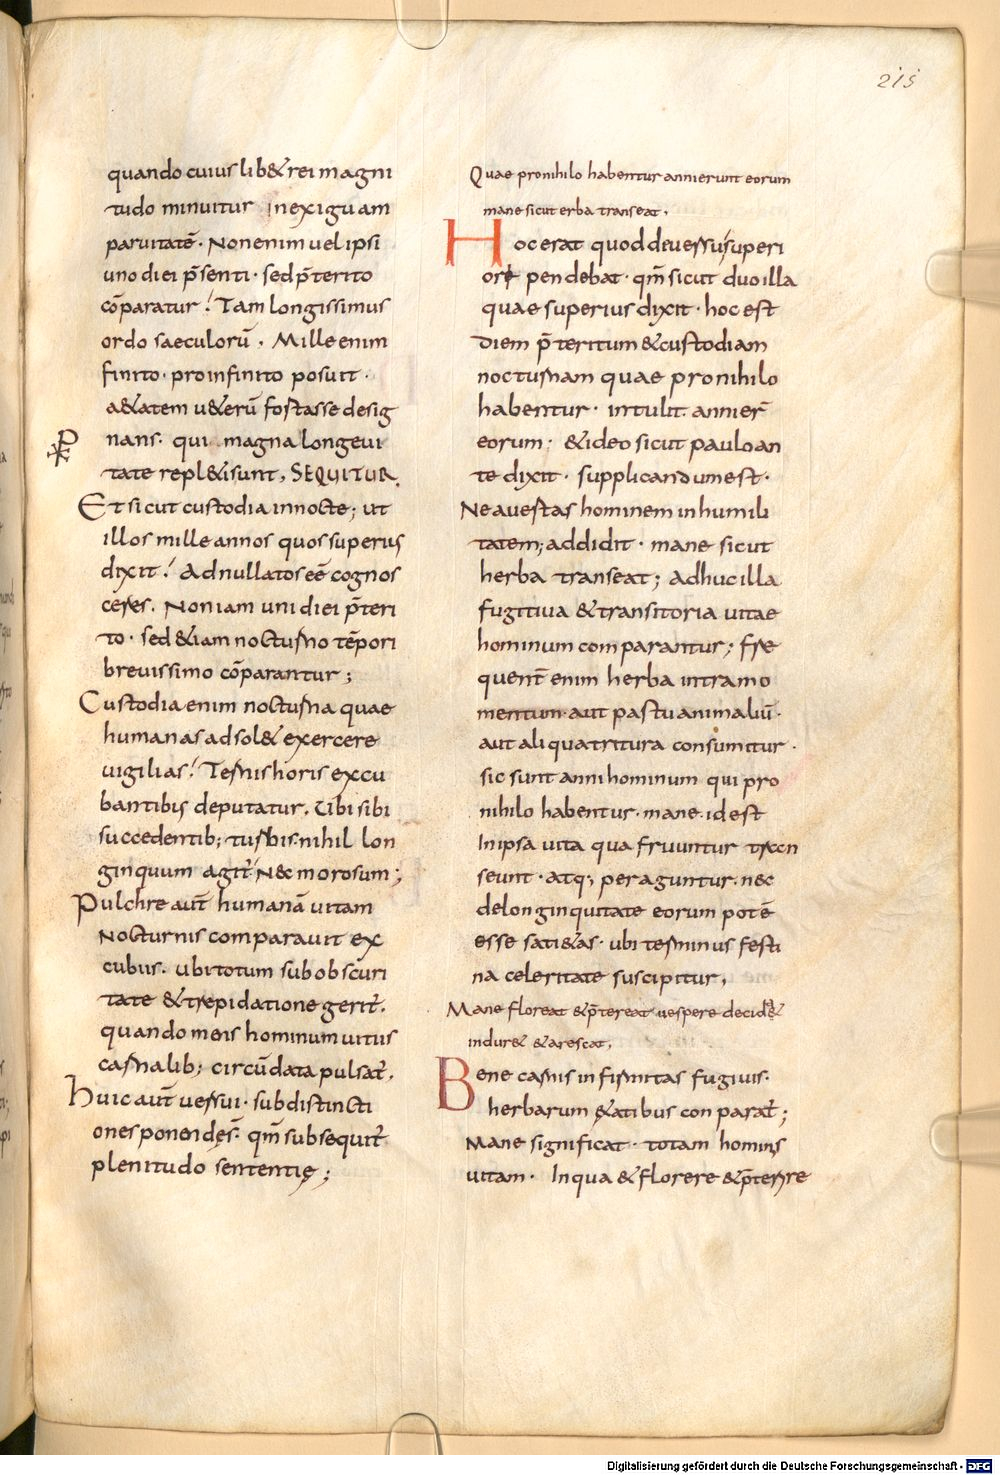 215
quando cuius lib& rei magni
tudo minuitur inexiguam
paruitatē. Nonenim uel ipsi
uno diei p̄senti. sed p̄terito
cōparatur! Tam longissimus
ordo saeculorū. Mille enim
finito. pro infinito posuit.
a&atem u&erū fortasse desig
nans. qui magna longeui
tate repl&i sunt, SEQUITUR.
Et sicut custodia in nocte; ut
illos mille annos quos superius
dixit! Ad nullatos eē cognos
ceres. Non iam uni diei p̄teri
to. sed &iam nocturno tēpori
breuissimo cōparantur;
Custodia enim nocturna quae
humanas ad sol& exercere
uigilias! Ternis horis excu
bantibus deputatur. Ubi sibi
succedentib; turbis. nihil lon
ginquum agit̄ Nec morosum;
Pulchre aut̄ humanā uitam
Nocturnis comparauit ex
cubiis. ubi totum sub obscuri
tate & trepidatione gerit̄.
quando meis hominum uitus
carnalib; circūdata pulsat̄.
Huic aut̄ uersui. subdistincti
ones ponendęs. qm̄ subsequit̄
plenitudo sententię;
Quae pronihilo habentur anni erunt eorum
mane sicut erba transeat.
Hoc erat quod de uersu superi
ore pendebat. qm̄ sicut duo illa
quae superius dixit. hoc est
diem p̄teritum & custodiam
nocturnam quae pro nihilo
habentur. intulit. anni er̄
eorum: & ideo sicut paulo an
te dixit. supplicandum est.
Ne auertas hominem in humili
tatem; addidit. mane sicut
herba transeat; Adhuc illa
fugitiua & transitoria uitae
hominum comparantur; Fre
quent̄ enim herba intra mo
mentum. aut pastu animaliū.
aut aliqua tritura consumitur.
sic sunt anni hominum qui pro
nihilo habentur. mane. id est
In ipsa uita qua fruuntur trecn
seunt. atq; peraguntur. nec
de longinquitate eorum potē
esse sati&as. ubi terminus festi
na celeritate suscipitur.
Mane floreat & p̄tereat uespere decid&
indur& & arescat.
Bene carnis infirmitas fugiuis.
herbarum &atibus conparat̄;
Mane significat. totam hominis
uitam. In qua & florere & p̄terire
Digitalisierung gefördert durch die Deutsche Forschungsgemeinschaft - DFG